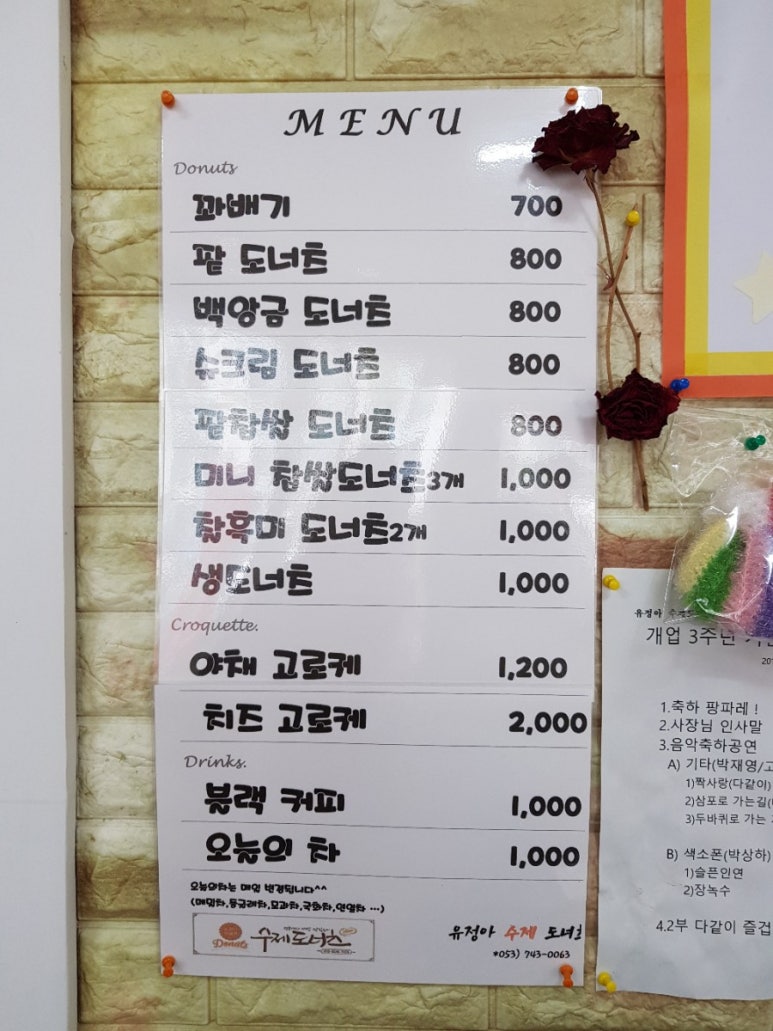 MENU
Donuts
꽈배기 700
팥 도너츠 800
백앙금 도너츠 800
슈크림 도너츠 800
팥찹쌀 도너츠 800
미니 찹쌀도너츠3개 1,000
찰흑미 도너츠2개 1,000
생도너츠 1,000
Croquette.
야채 고로케 1,200
치즈 고로케 2,000
Drinks.
블랙 커피 1,000
오늘의 차 1,000
오늘의차는 매일 변경됩니다^^
(매실차,둥굴레차,모과차,국화차,연잎차 …)
Donuts 수제도나스
유정아 수제 도너츠
*053) 743-0063
유정아 수제
개업 3주년
20
1.축하 팡파레 !
2.사장님 인사말
3.음악축하공연
A) 기타(박재영/고
1)짝사랑(다같이)
2)삼포로 가는길(
3)두바퀴로 가는
B) 색소폰(박상하)
1)슬픈인연
2)장녹수
4.2부 다같이 즐겁